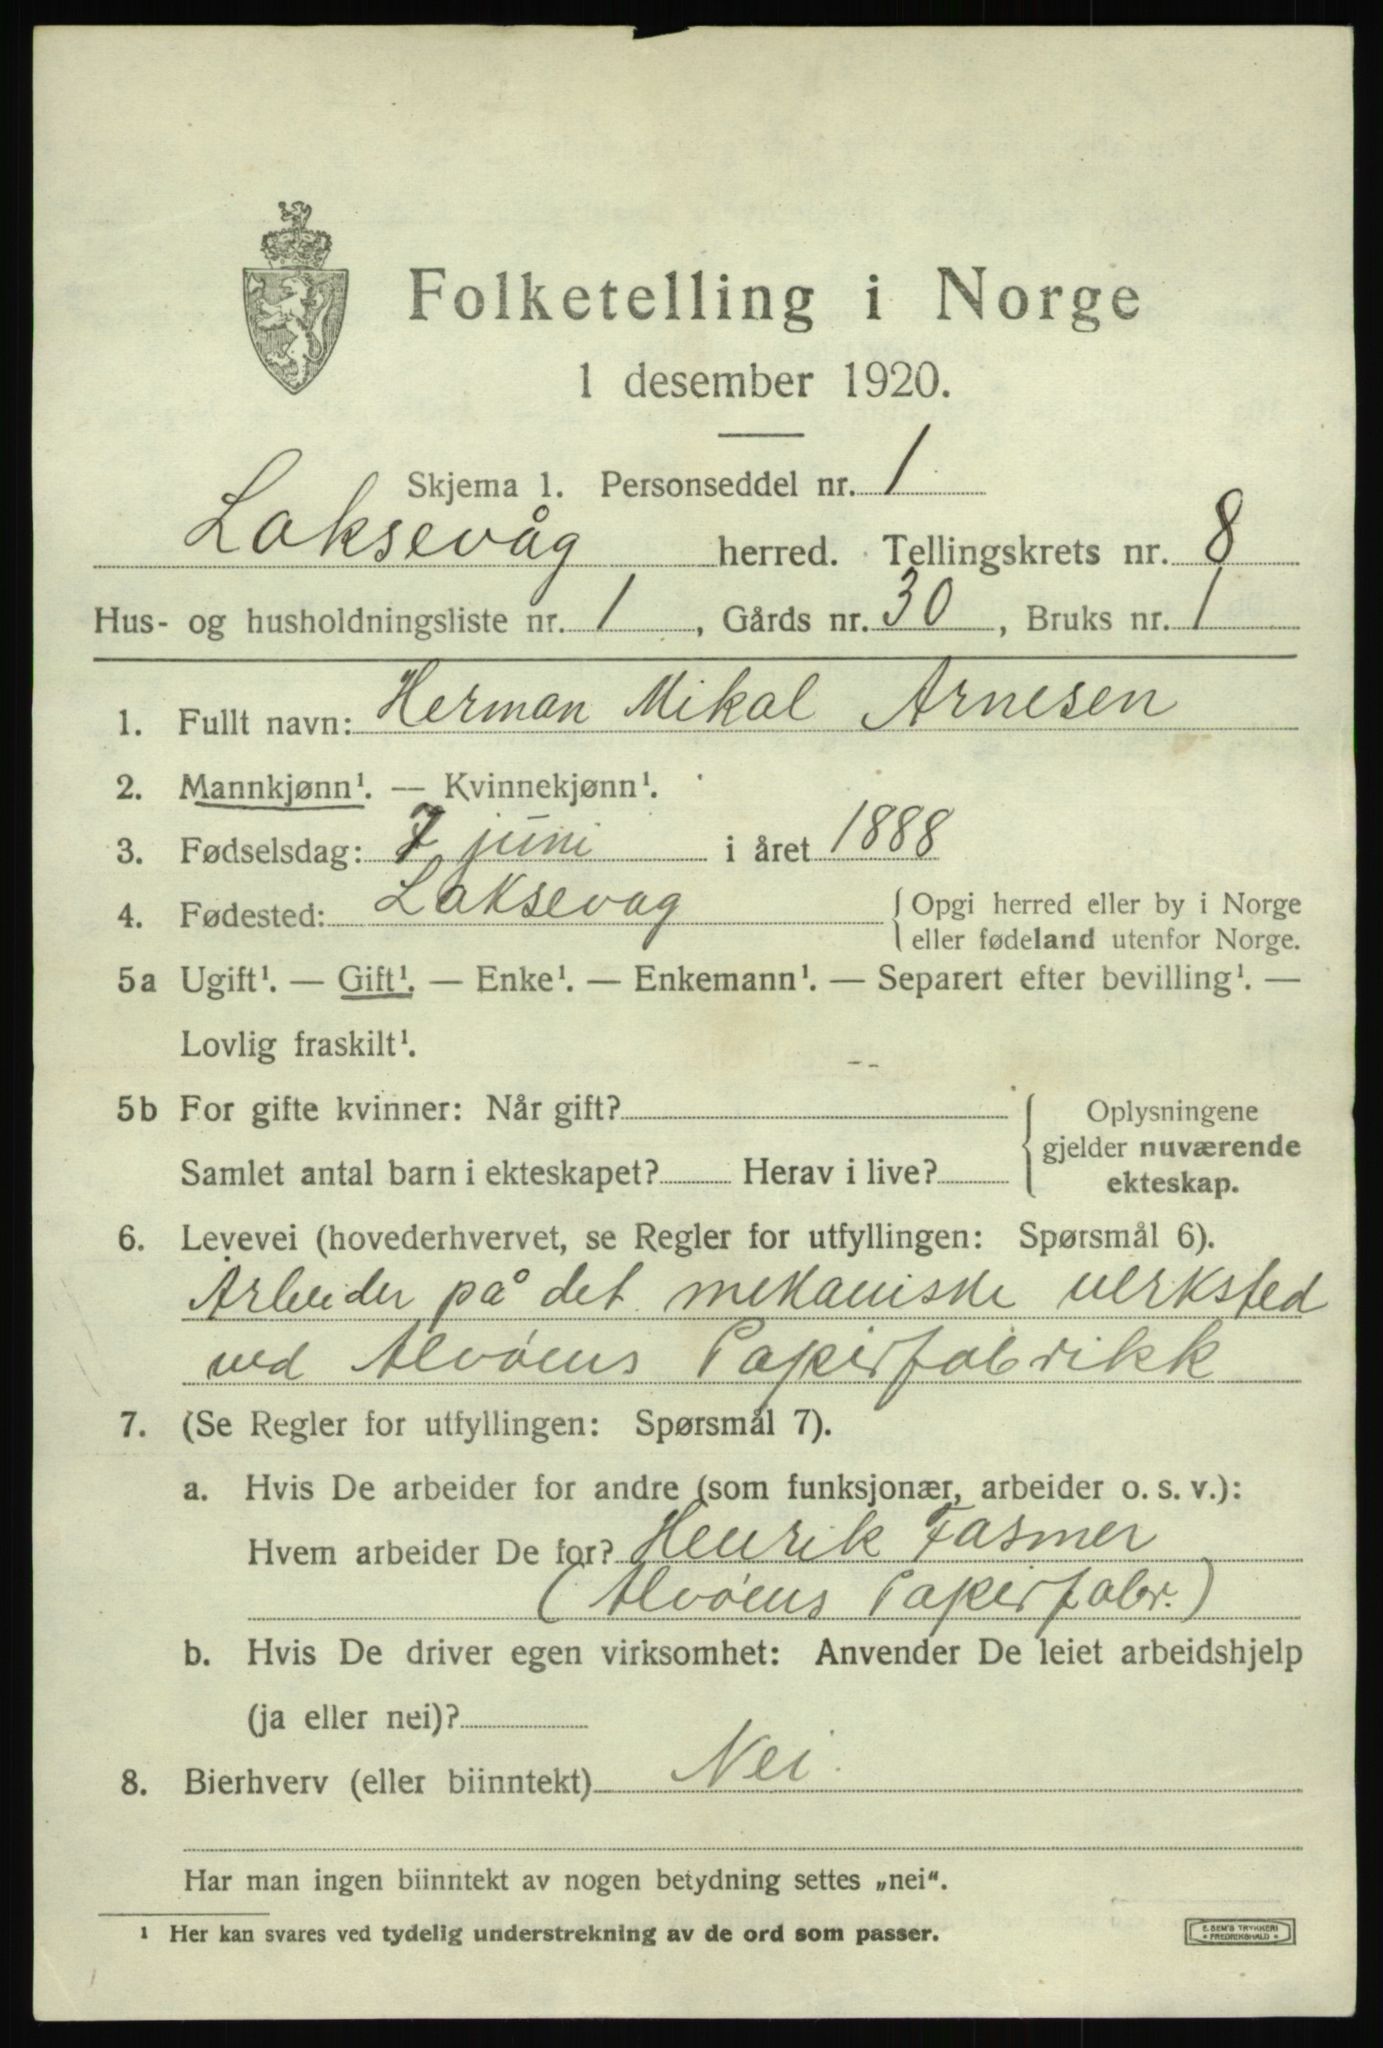 Folketelling i Norge
1 desember 1920.
Skjema 1. Personseddel nr. 1
Laksevåg herred. Tellingskrets nr. 8
Hus- og husholdningsliste nr. 1, Gårds nr. 30, Bruks nr. 1
1. Fullt navn: Herman Mikal Arnesen
2. Mannkjønn¹. — Kvinnekjønn¹.
3. Fødselsdag: 7 juni i året 1888
4. Fødested: Laksevag { Opgi herred eller by i Norge
eller fødeland utenfor Norge.
5a Ugift¹. — Gift¹. — Enke¹. — Enkemann¹. — Separert efter bevilling¹. —
Lovlig fraskilt¹.
5b For gifte kvinner: Når gift? { Oplysningene
gjelder nuværende
Samlet antal barn i ekteskapet? Herav i live? ekteskap.
6. Levevei (hovederhvervet, se Regler for utfyllingen: Spørsmål 6).
Arbeider på det mekaniske verksted
ved Alvøens Papirfabrikk
7. (Se Regler for utfyllingen: Spørsmål 7).
a. Hvis De arbeider for andre (som funksjonær, arbeider o. s. v.):
Hvem arbeider De for? Henrik Fasmer
(Alvøens Papirfabr.)
b. Hvis De driver egen virksomhet: Anvender De leiet arbeidshjelp
(ja eller nei)?
8. Bierhverv (eller biinntekt) Nei
Har man ingen biinntekt av nogen betydning settes „nei“.
¹ Her kan svares ved tydelig understrekning av de ord som passer.
E. SEM'S TRYKKERI
FREDRIKSHALD